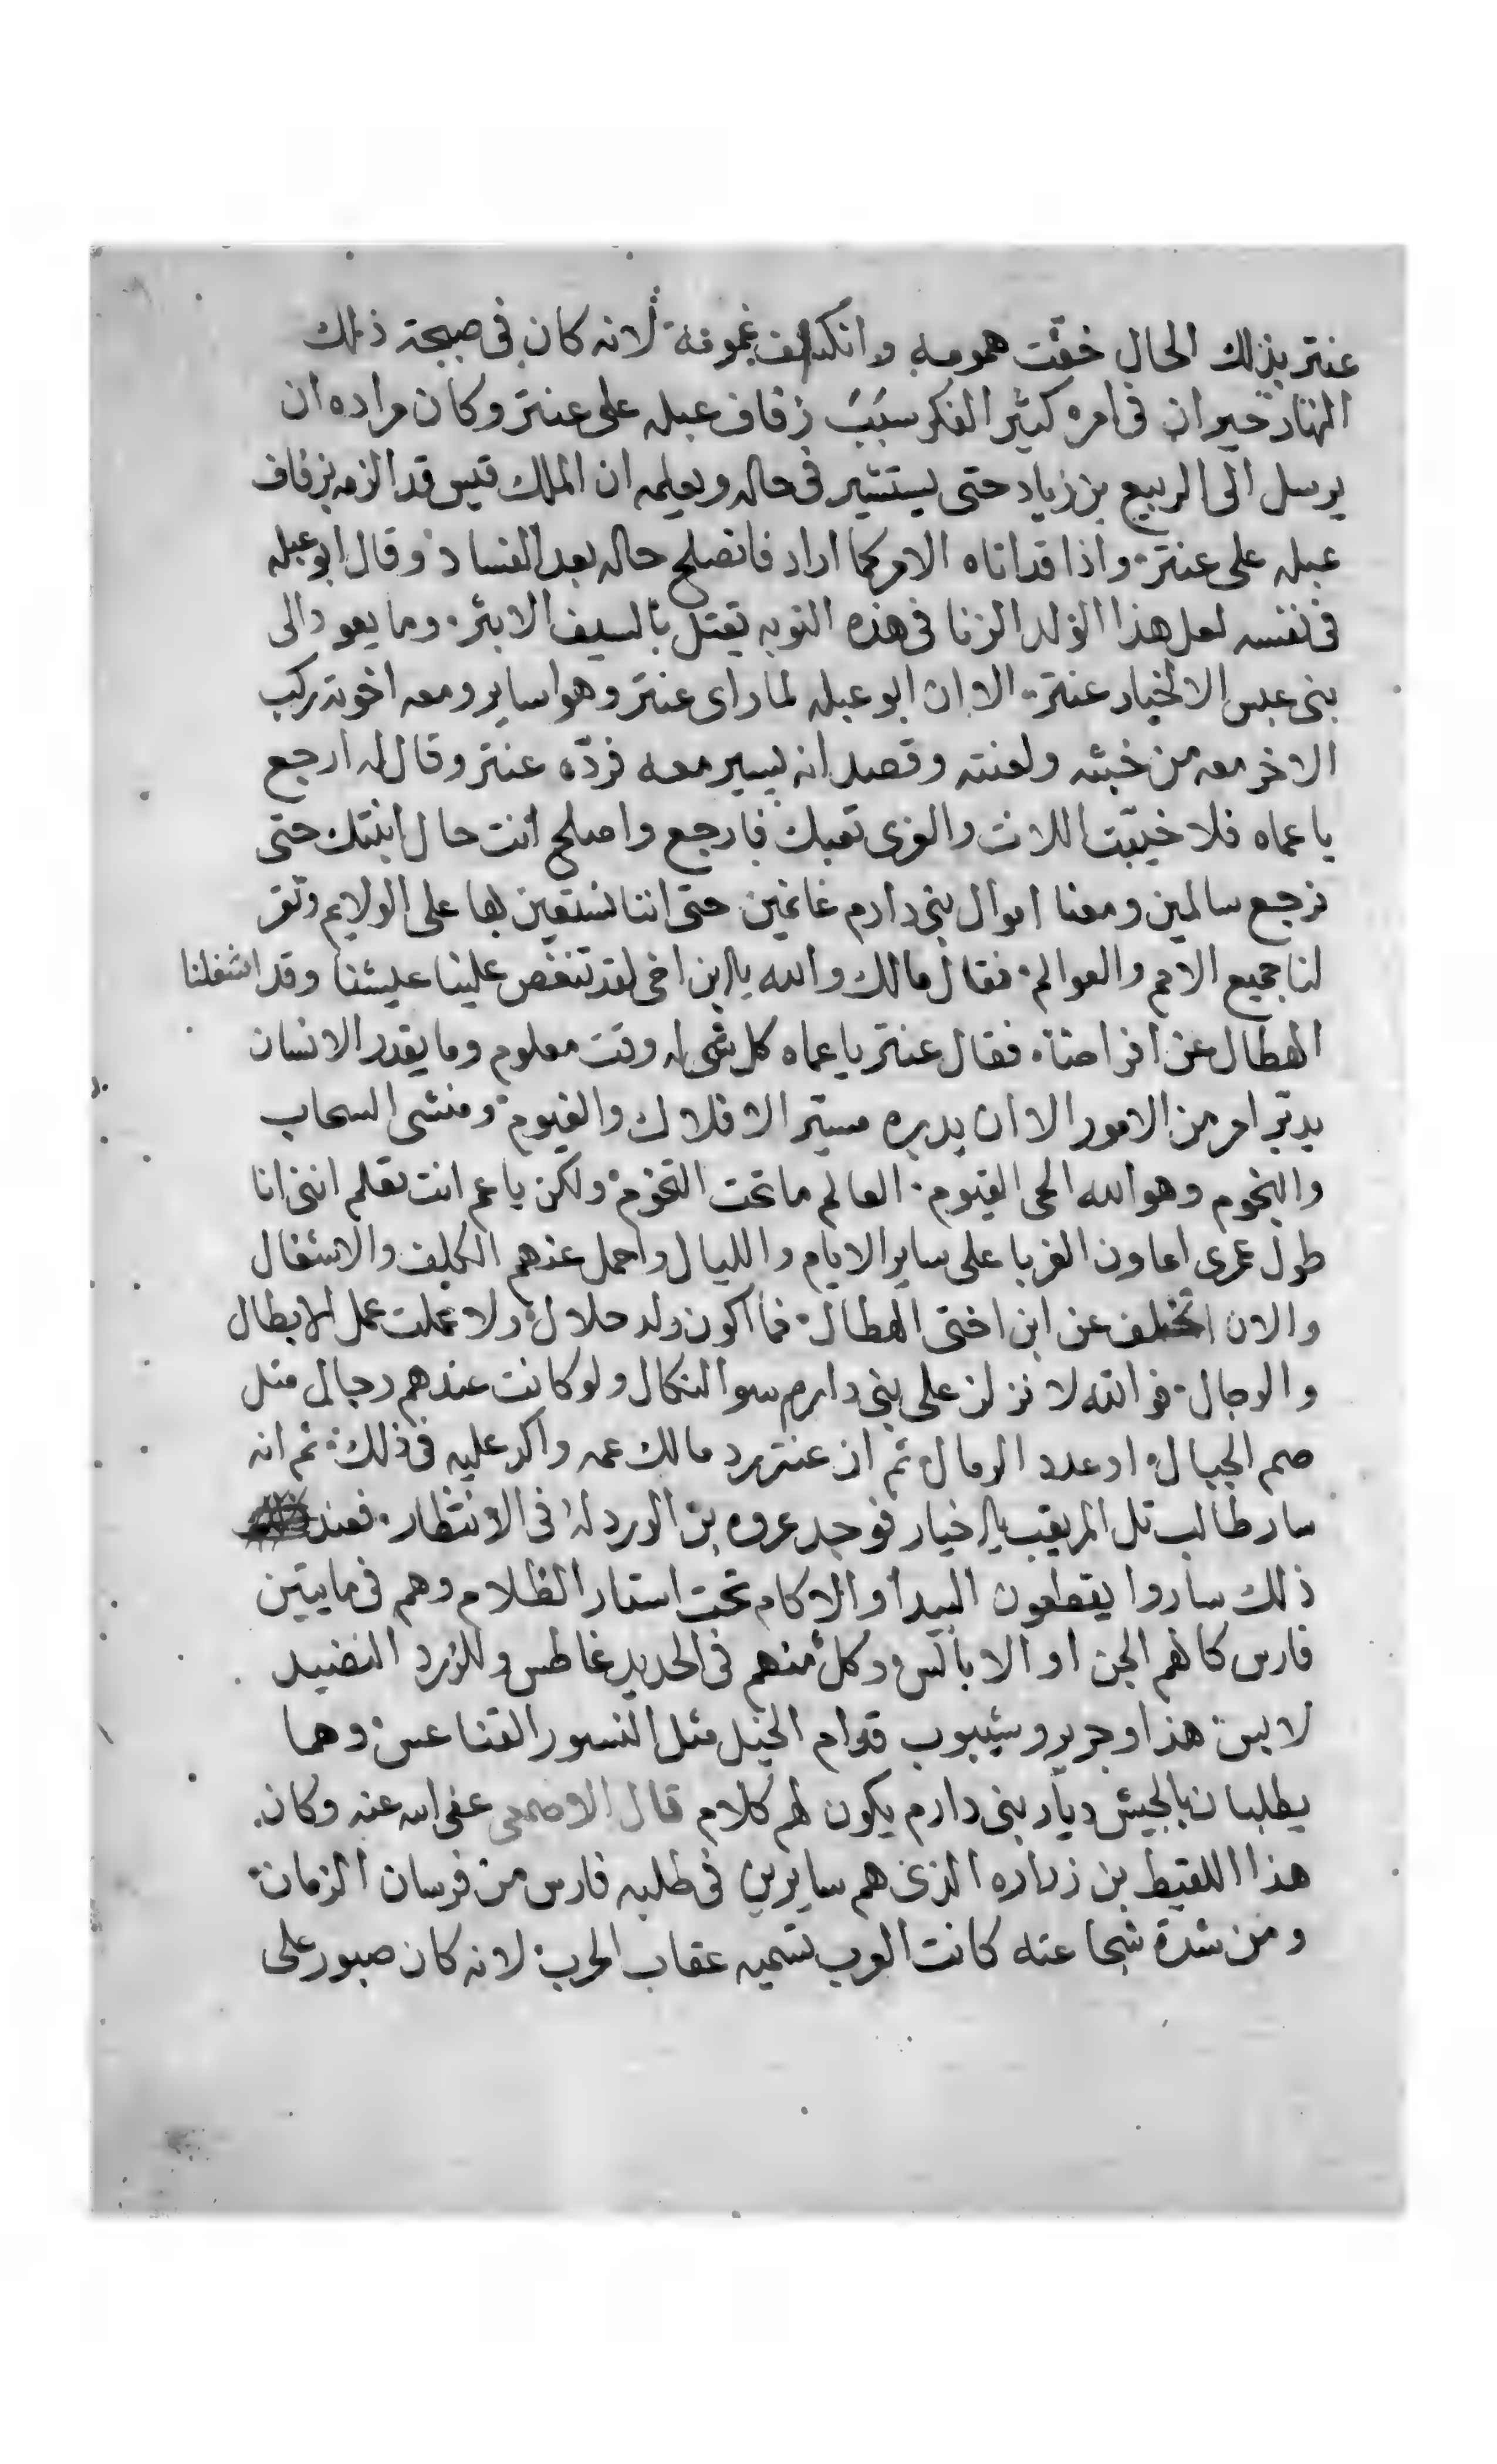 عنتر بذلك الحال خفّت همومه وانكشف غمومه لانه كان فى صبيحة ذلك
النهار حيران فى امره كثير الفكر سبب زفاف عبله على عنتر وكان مراده ان
يرسل الى الربيع بن زياد حتى يستشير فى حاله ويعلمه ان الملك قيس قد الزمه بزفاف
عبله على عنتر واذا قد اتاه الامر كما اراد فانصلح حاله بعد الفساد وقال ابو عبله
فى نفسه لعل هذا الولد الزنا فى هذه النوبه يقتل بالسيف الابتر وما يعود الى
بنى عبس الا اخبار عنتر الا ان ابو عبله لما راى عنتر وهو ساير ومعه اخوته ركب
الاخر معه من خبثه ولعنته وقصد انه يسير معه فردّه عنتر وقال له ارجع
يا عماه فلا خيّبت اللات والعزى تعبك فارجع واصلح انت حال ابنتك حتى
نرجع سالمين ومعنا اموال بنى دارم غانمين حتى اننا نستعين بها على الولايم وتقر
لنا جميع الامم والعوالم فقال مالك والله يا ابن اخى لقد تنغص علينا عيشنا وقد اشغلنا
الهطال عن افراحنا فقال عنتر يا عماه كل شى له وقت معلوم وما يقدر الانسان
يدبّر امر من الامور الا ان يدبره مسيّر الافلاك والغيوم ومنشى السحاب
والنجوم وهو الله الحى القيوم العالم ما تحت التخوم ولكن يا عم انت تعلم اننى انا
طول عمرى اعاون الغربا على ساير الايام والليال واحمل عنهم الكلف والاشغال
والان اتخلف عن ابن اختى الهطال فما اكون ولد حلال ولا عملت عمل الابطال
والرجال فوالله لا نزلن على بنى دارم سوا النكال ولو كانت عندهم رجال مثل
صم الجبال او عدد الرمال ثم ان عنتر رد مالك عمه واكد عليه فى ذلك ثم انه
سار طالب تل المريقب يا اخيار فوجد عروه بن الورد له فى الانتظار فعند
ذلك ساروا يقطعون البيدا والاكام تحت استار الظلام وهم فى مايتين
فارس كانهم الجن او الابالس وكل منهم فى الحديد غاطس وللزرد النضيد
لابس هذا وجرير وشيبوب قدام الخيل مثل النسور القناعس وهما
يطلبان بالجيش ديار بنى دارم يكون لهم كلام قال الاصمعى عفى الله عنه وكان
هذا اللقيط بن زراره الذى هم سايرين فى طلبه فارس من فرسان الزمان
ومن شدة شجاعته كانت العرب تسميه عقاب الحرب لانه كان صبور على